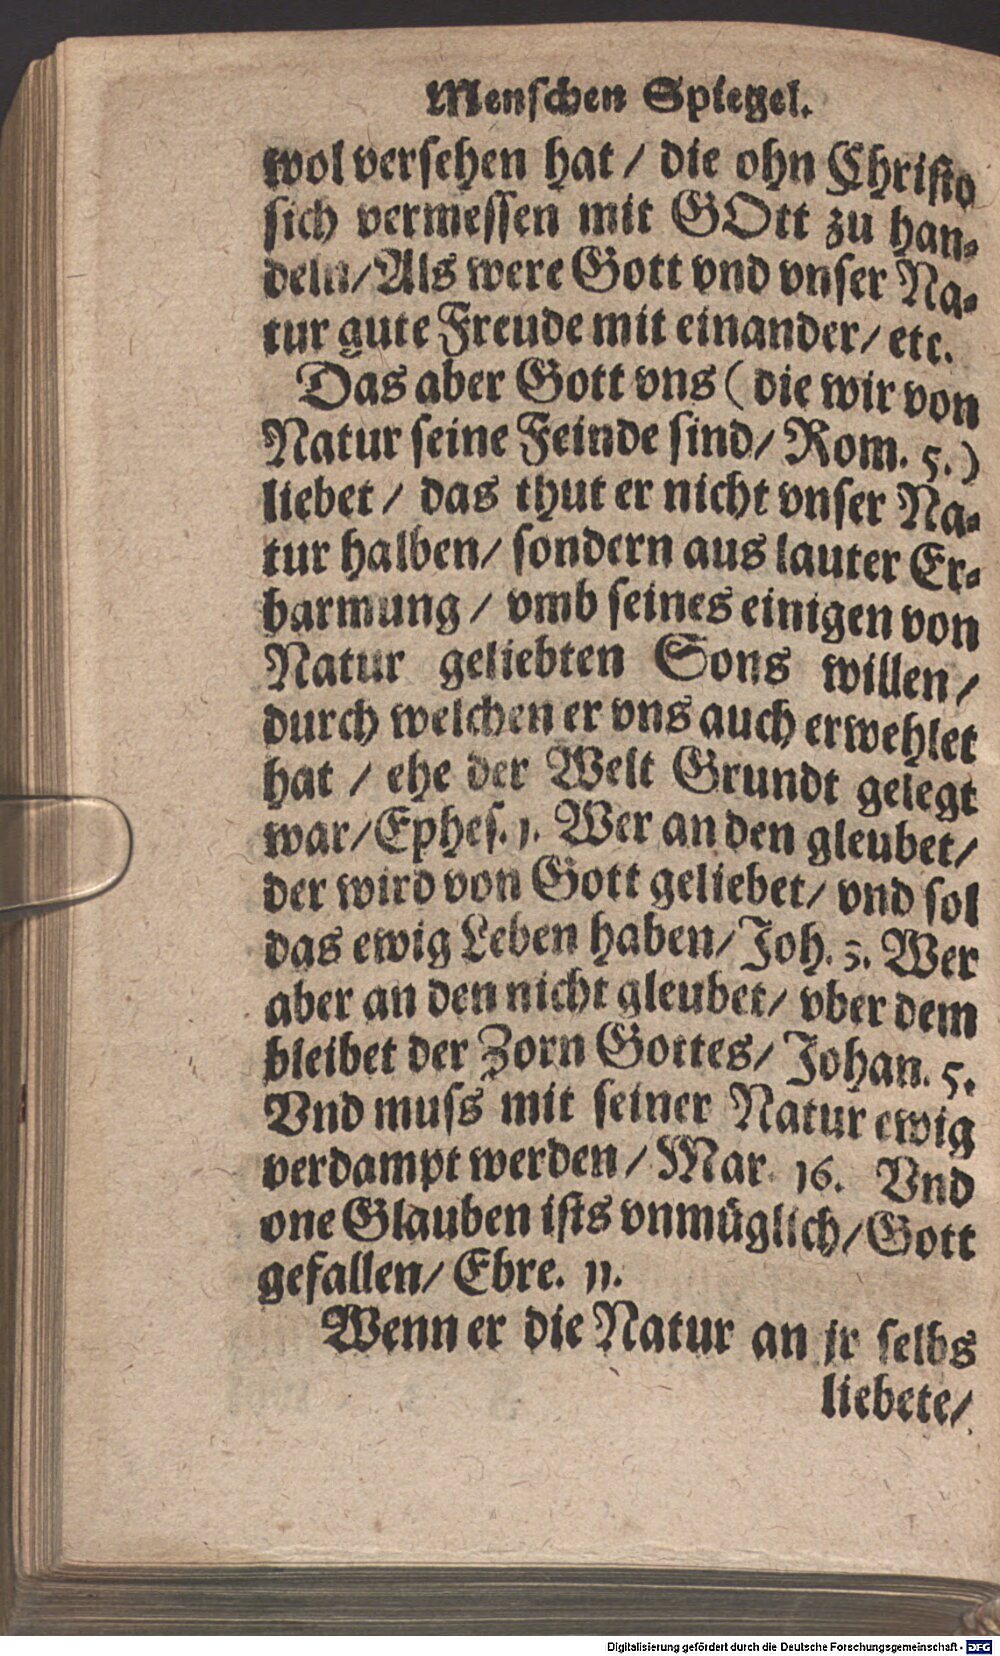 Menſchen Spiegel.
wol verſehen hat / die ohn Chriſto
ſich vermeſſen mit GOtt zu han⸗
deln/ Als were Gott vnd vnſer Na⸗
tur gute Freude mit einander/ etc.
Das aber Gott vns ( die wir von
Natur ſeine Feinde ſind/ Rom. 5.)
liebet / das thut er nicht vnſer Na⸗
tur halben/ ſondern aus lauter Er⸗
barmung / vmb ſeines einigen von
Natur geliebten Sons willen /
durch welchen er vns auch erwehlet
hat / ehe der Welt Grundt gelegt
war/ Epheſ. 1. Wer an den gleubet/
der wird von Gott geliebet/ vnd ſol
das ewig Leben haben/ Joh. 3. Wer
aber an den nicht gleubet/ vber dem
bleibet der Zorn Gottes/ Johan. 5.
Vnd muſs mit ſeiner Natur ewig
verdampt werden / Mar. 16. Vnd
one Glauben iſts vnmüglich/ Gott
gefallen/ Ebre. 11.
Wenn er die Natur an jr ſelbs
liebete/
Digitalisierung gefördert durch die Deutsche Forschungsgemeinschaft - DFG